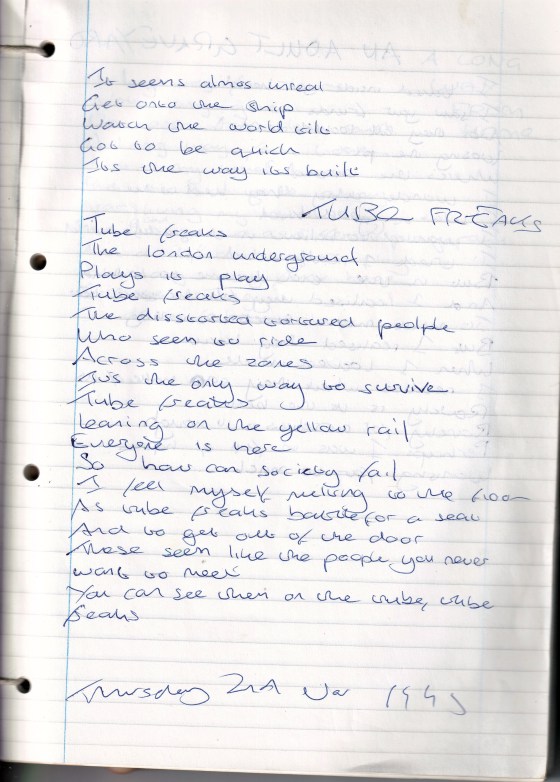 It seems almos unreal
Get onto the ship
Watch the world tilt
Got to be quick
Its the way its built
TUBE FREAKS
Tube freaks
The london underground
Plays its play
Tube freaks
The disstorted tortured people
Who seem to ride
Across the zones
Its the only way to survive.
Tube freaks
Leaning on the yellow rail
Everyone is here
So how can society fail
I feel myself melting to the floor
As tube freaks battle for a seat
And to get out of the door
These seem like the people you never
want to meet
You can see them on the tube, tube
freaks
Thursday 2nd Nov 1995